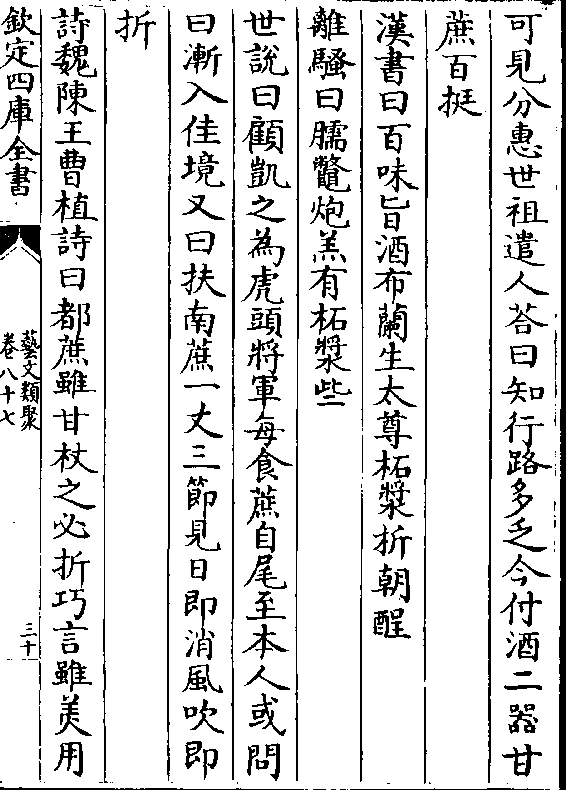 可見分惠世祖遣人荅曰知行路多乏今付酒二器甘
蔗百挺
漢書曰百味旨酒布蘭生太尊柘漿折朝酲
離騷曰臑鼈炮羔有柘漿些
世說曰顧凱之為虎頭將軍每食蔗自尾至本人或問
曰漸入佳境又曰扶南蔗一丈三節見日即消風吹即
折
詩魏陳王曹植詩曰都蔗雖甘杖之必折巧言雖美用
欽定四庫全書
藝文類聚
卷八十七
三十